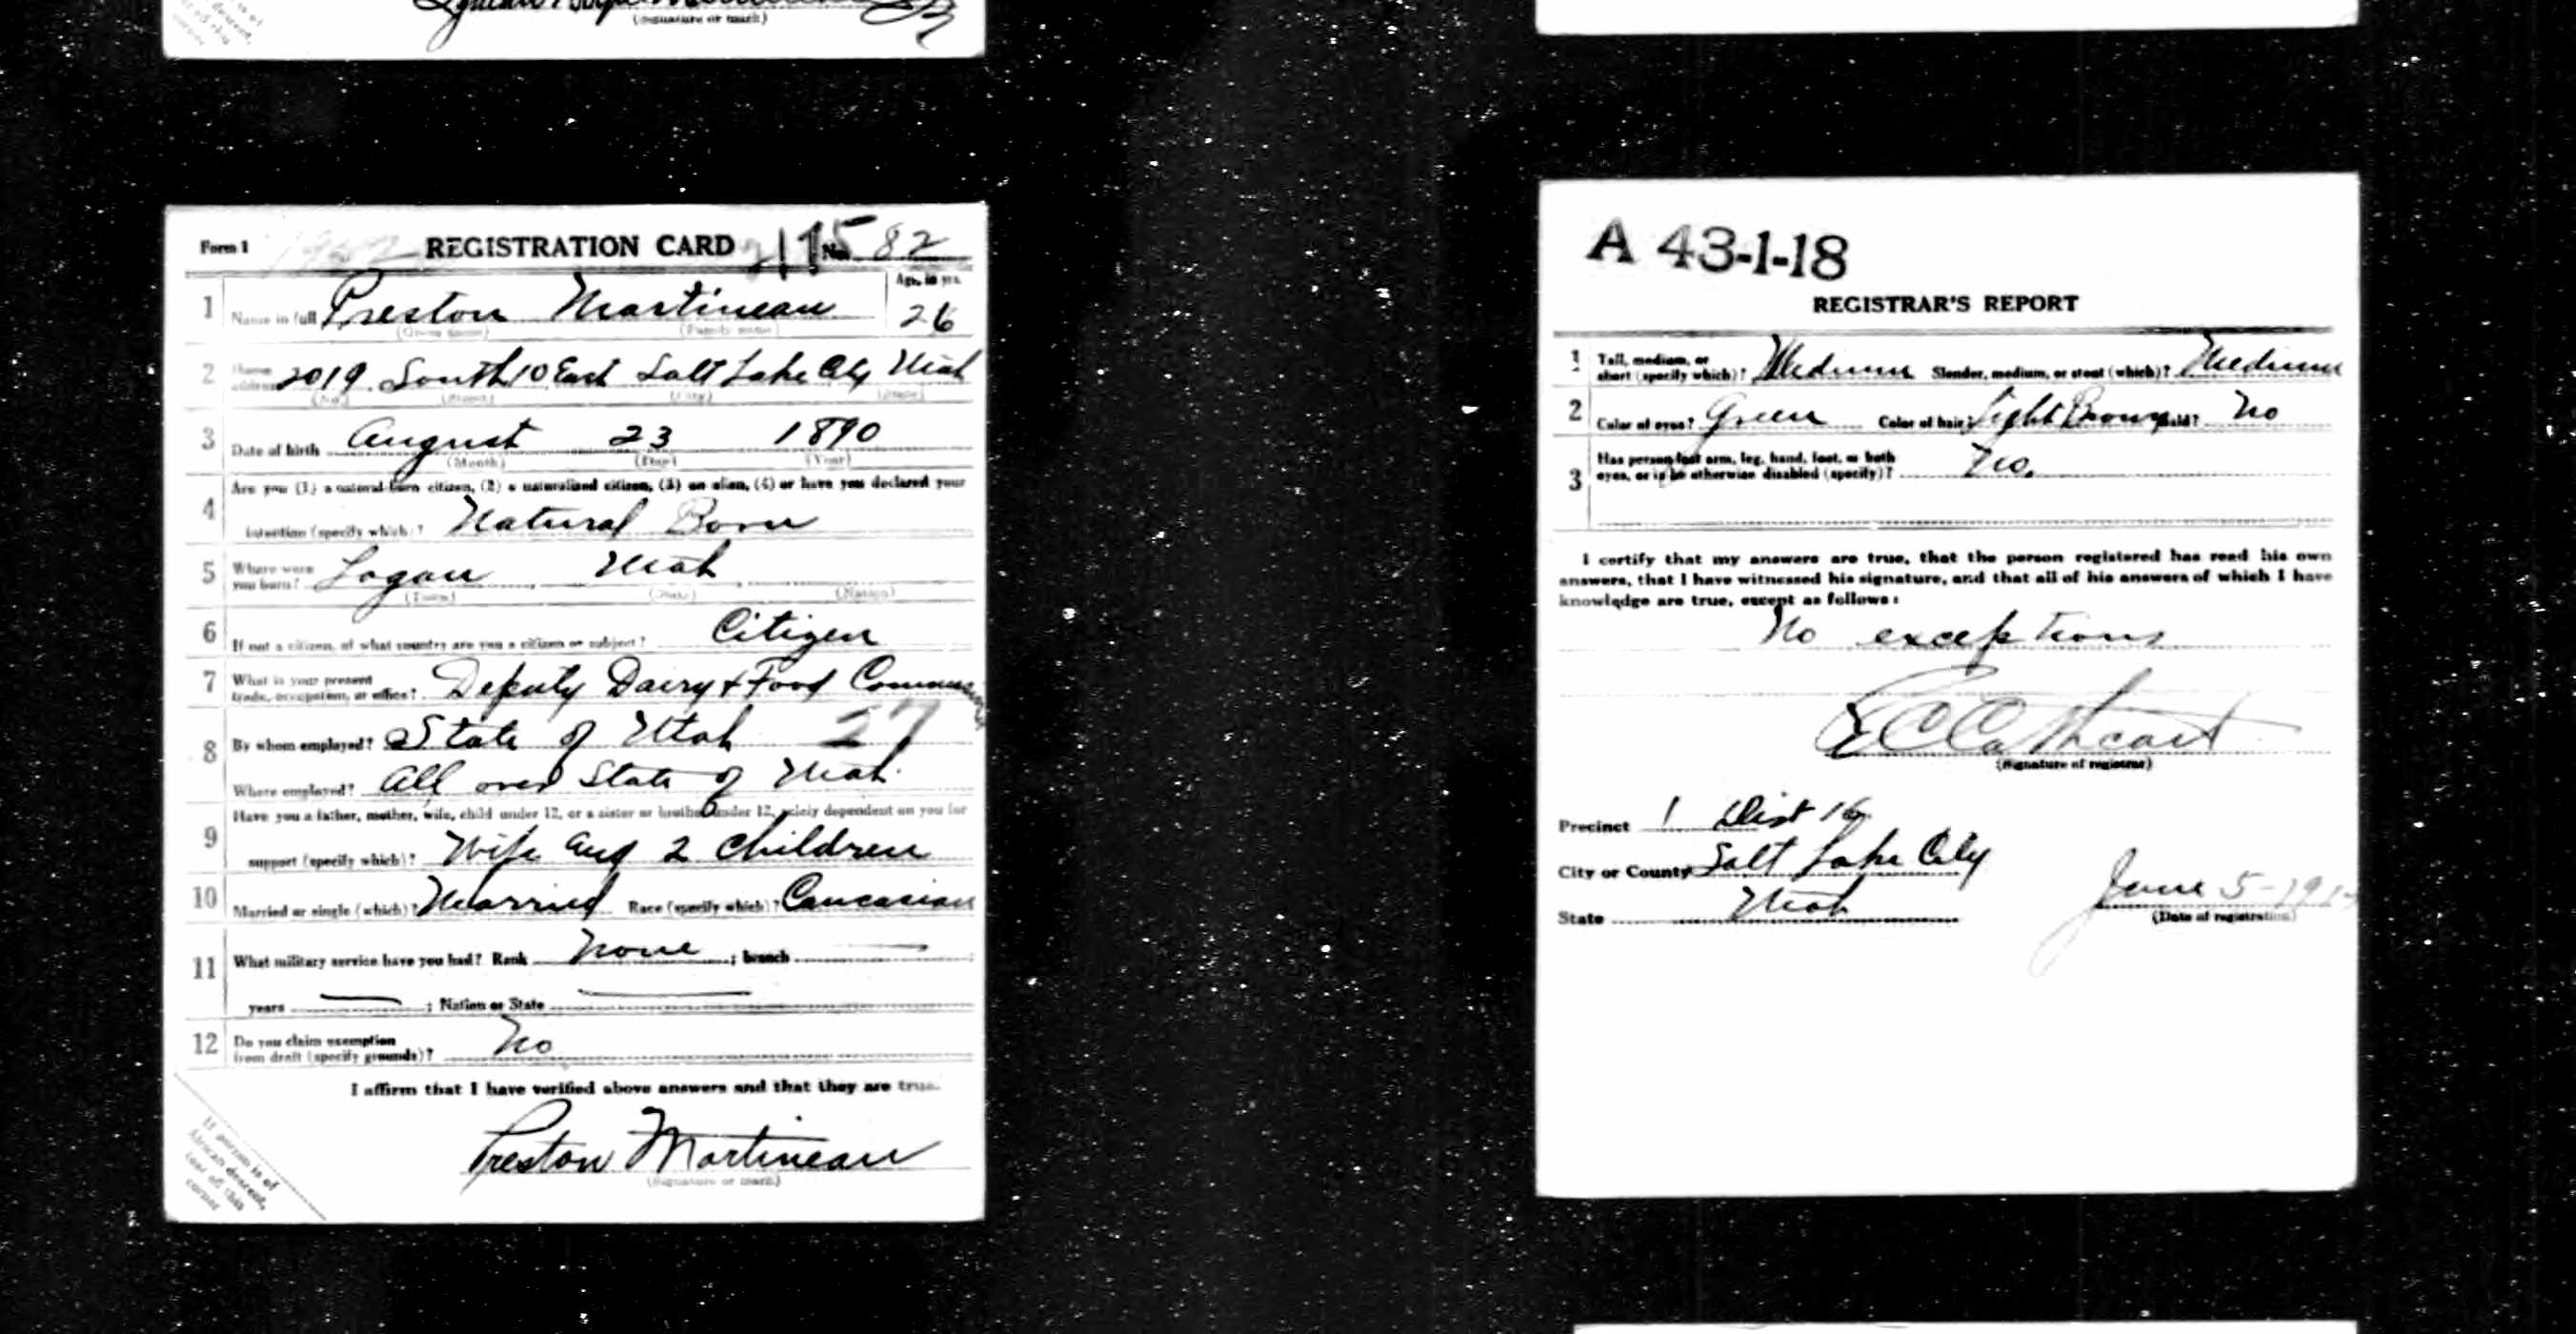 (Signature or mark)
Form 1 REGISTRATION CARD No. 82
1 Name in full Preston Martineau Age, in yrs. 26
(Given name) (Family name)
2 Home address 2019 South 10 East Salt Lake City Utah
(No.) (Street) (City) (State)
3 Date of birth August 23 1890
(Month) (Day) (Year)
4 Are you (1) a natural-born citizen, (2) a naturalized citizen, (3) an alien, (4) or have you declared your
intention (specify which)? Natural Born
5 Where were you born? Logan Utah
(Town) (State) (Nation)
6 If not a citizen, of what country are you a citizen or subject? Citizen
7 What is your present trade, occupation, or office? Deputy Dairy & Food
8 By whom employed? State of Utah 27
Where employed? All over State of Utah.
9 Have you a father, mother, wife, child under 12, or a sister or brother under 12, solely dependent on you for
support (specify which)? Wife and 2 children
10 Married or single (which)? Married Race (specify which)? Caucasian
11 What military service have you had? Rank None ; branch
years ; Nation or State
12 Do you claim exemption from draft (specify grounds)? No
I affirm that I have verified above answers and that they are true.
Preston Martineau
(Signature or mark)
If person is of
African descent,
tear off this
corner
A 43-1-18
REGISTRAR'S REPORT
1 Tall, medium, or short (specify which)? Medium Slender, medium, or stout (which)? Medium
2 Color of eyes? Green Color of hair? Light Brown Bald? No
3 Has person lost arm, leg, hand, foot, or both
eyes, or is he otherwise disabled (specify)? No.
I certify that my answers are true, that the person registered has read his own
answers, that I have witnessed his signature, and that all of his answers of which I have
knowledge are true, except as follows:
No exceptions
E C Cathcart
(Signature of registrar)
Precinct 1 Dist 16
City or County Salt Lake City
State Utah
June 5-1917
(Date of registration)